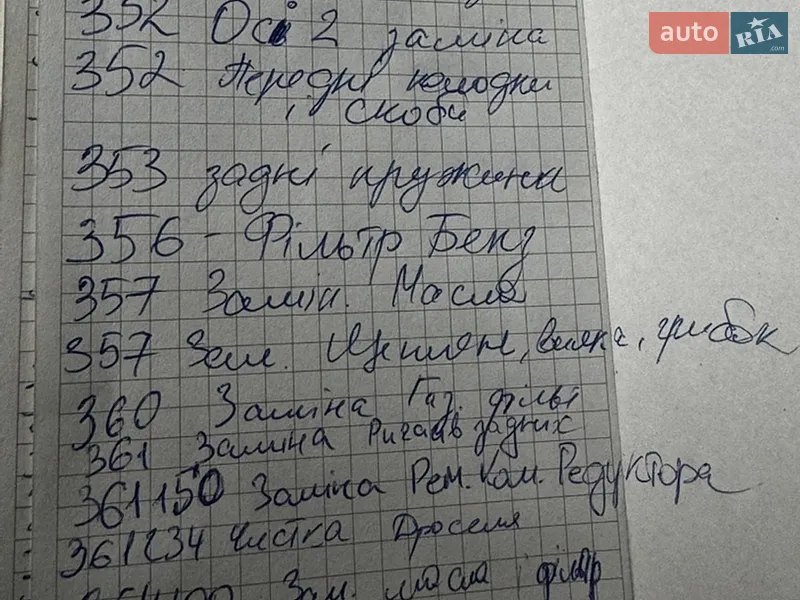 auto RIA .com
352 Осі 2 заміна
352 Передні колодки
і скоби
353 задні пружини
356 - Фільтр Бенз
357 Замін. Масла
357 Зам. вилка, грибок
360 Заміна Газ. фільт
361 Заміна Ричагів задних
361150 Заміна Рем. Ком. Редуктора
361234 Чистка Дроселя
Зам. масла і фільтр